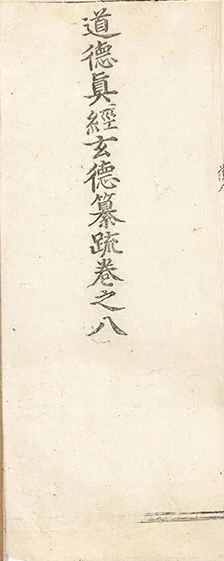 道德眞經玄德纂疏卷之八